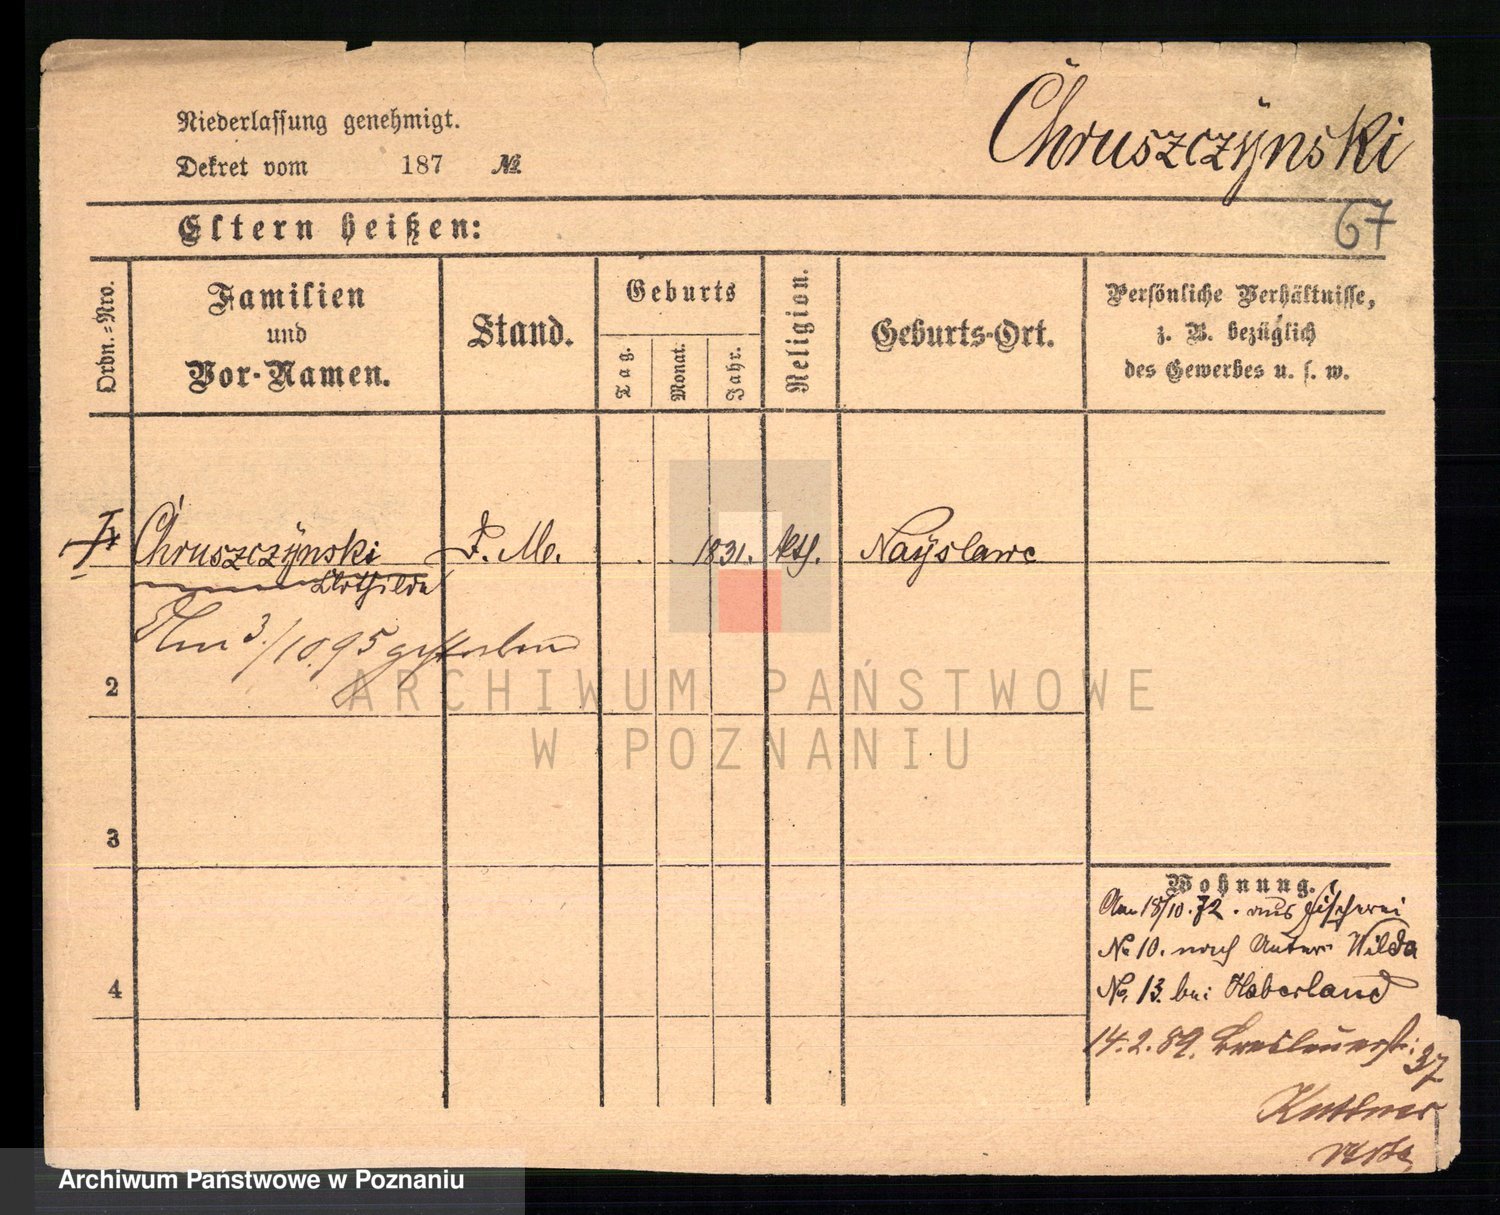 Niederlassung genehmigt.
Dekret vom 187 №
Chruszczÿnski
67
Eltern heißen:
Ordn.-Nro.
Familien
und
Vor-Namen.
Stand.
Geburts
Tag.
Monat.
Jahr.
Religion.
Geburts-Ort.
Persönliche Verhältnisse,
z. B. bezüglich
des Gewerbes u. s. w.
Chruszczÿnski
Clothilde
1831. kth. Nayslawe
Am 3./10.95 gestorben
2
3
4
Wohnung.
Am 18/10.72. aus Fischerei
No 10. nach Unter Wilda
No. 13. bei Haberland
14.2.89. Breslauerstr: 37
ARCHIWUM PAŃSTWOWE
W POZNANIU
Archiwum Państwowe w Poznaniu